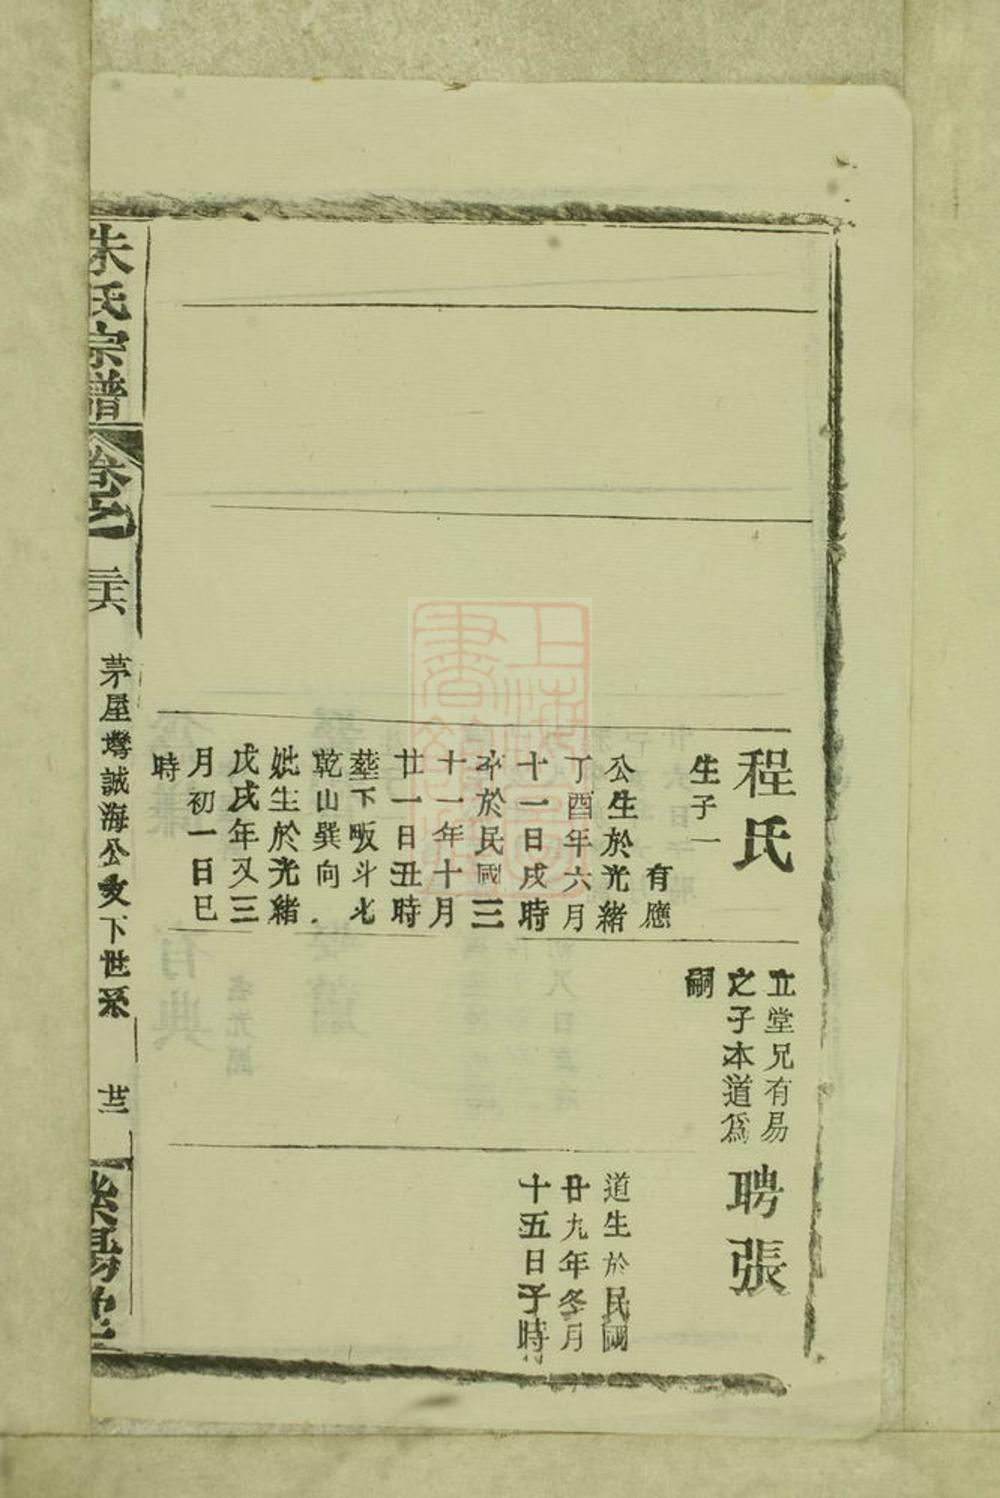 程氏
生子一
有應
公生於光緒
丁酉年六月
十一日戌時
卒於民國三
十一年十月
廿一日丑時
塟下畈斗北
乾山巽向
妣生於光緒
戊戌年又三
月初一日巳
時
立堂兄有易
之子本道為
嗣
聘張
道生於民國
廿九年冬月
十五日子時
朱氏宗譜
卷之
二六
茅屋塆誠海公
下世系
廿三
堂
上海圖書館藏